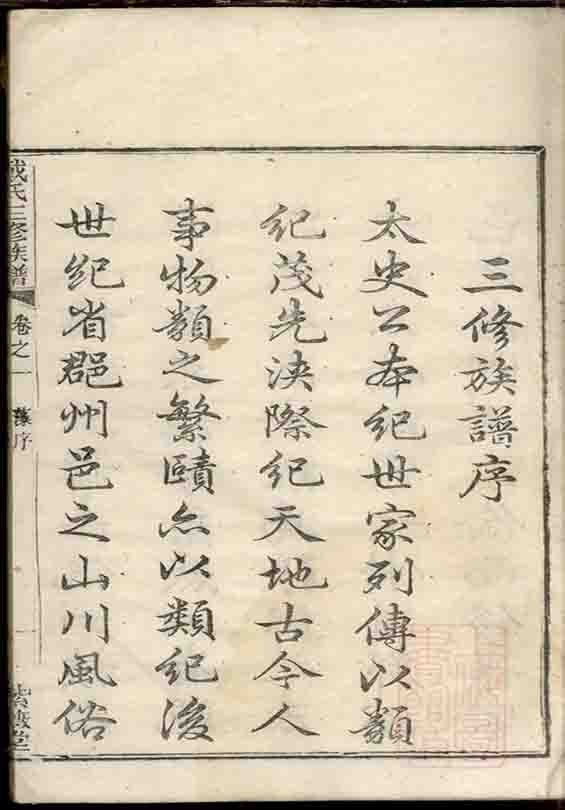 三修族譜序
太史公本紀世家列傳以類
紀茂先浹際紀天地古今人
事物類之繁賾亦以類紀後
世紀省郡州邑之山川風俗
戴氏三修族譜
卷之一
譜序
一
紫薇堂